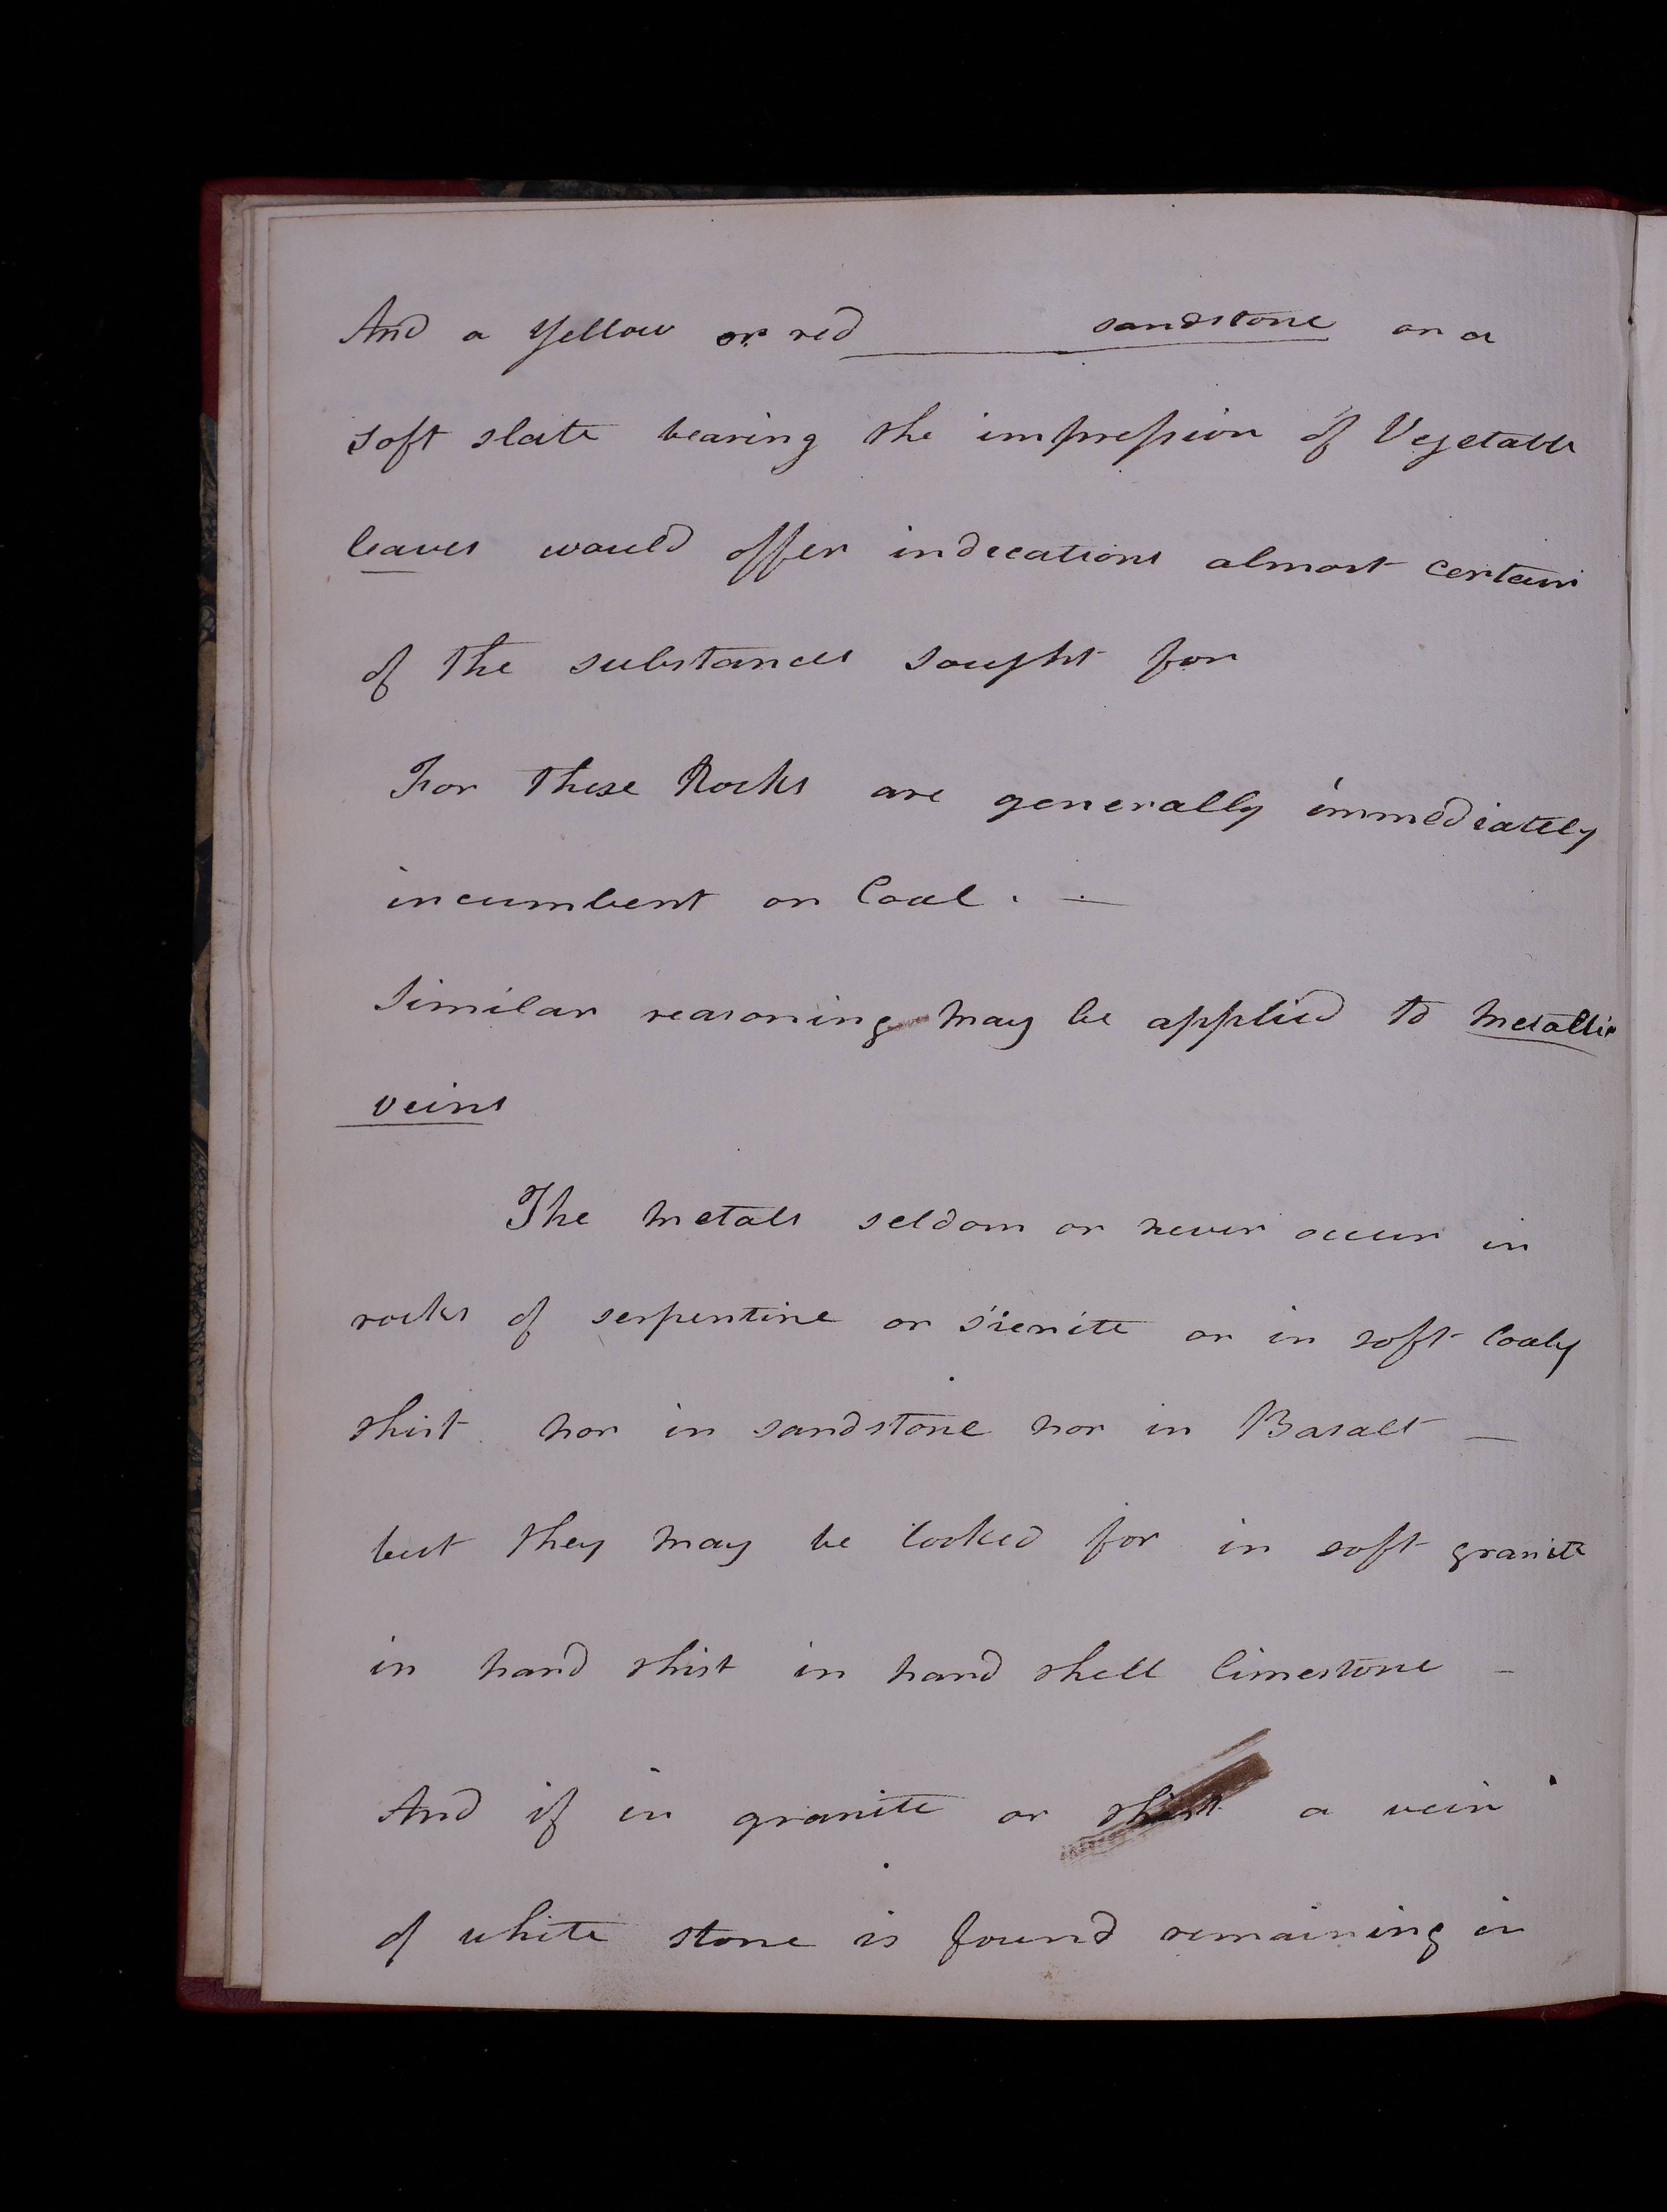 And a Yellow or red sandstone or a
soft slate bearing the impression of Vegetable
leaves would offer indecations almost certain
of the substances sought for
For these Rocks are generally immediately
incumbent on Coal. —
Similar reasoning may be applied to metallic
veins
The metals seldom or never occur in
rocks of serpentine or sienite or in soft Coaly
shist nor in sandstone nor in Basalt —
but they may be looked for in soft granite
in hard shist in hard shell limestone —
And if in granite or shist a vein
of white stone is found remaining in